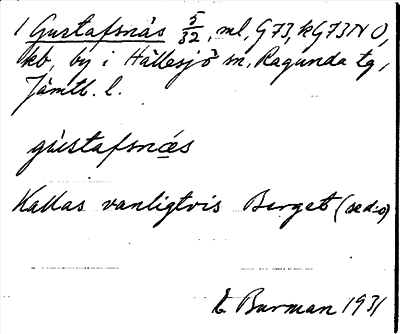 1 Gustafsnäs 5/32, ml, G73, kG73NO,
kb, by i Hällesjö sn, Ragunda tg,
Jämtl. l.
gùstafsnæs
Kallas vanligtvis Berget (se d:o)
E. Burman 1931